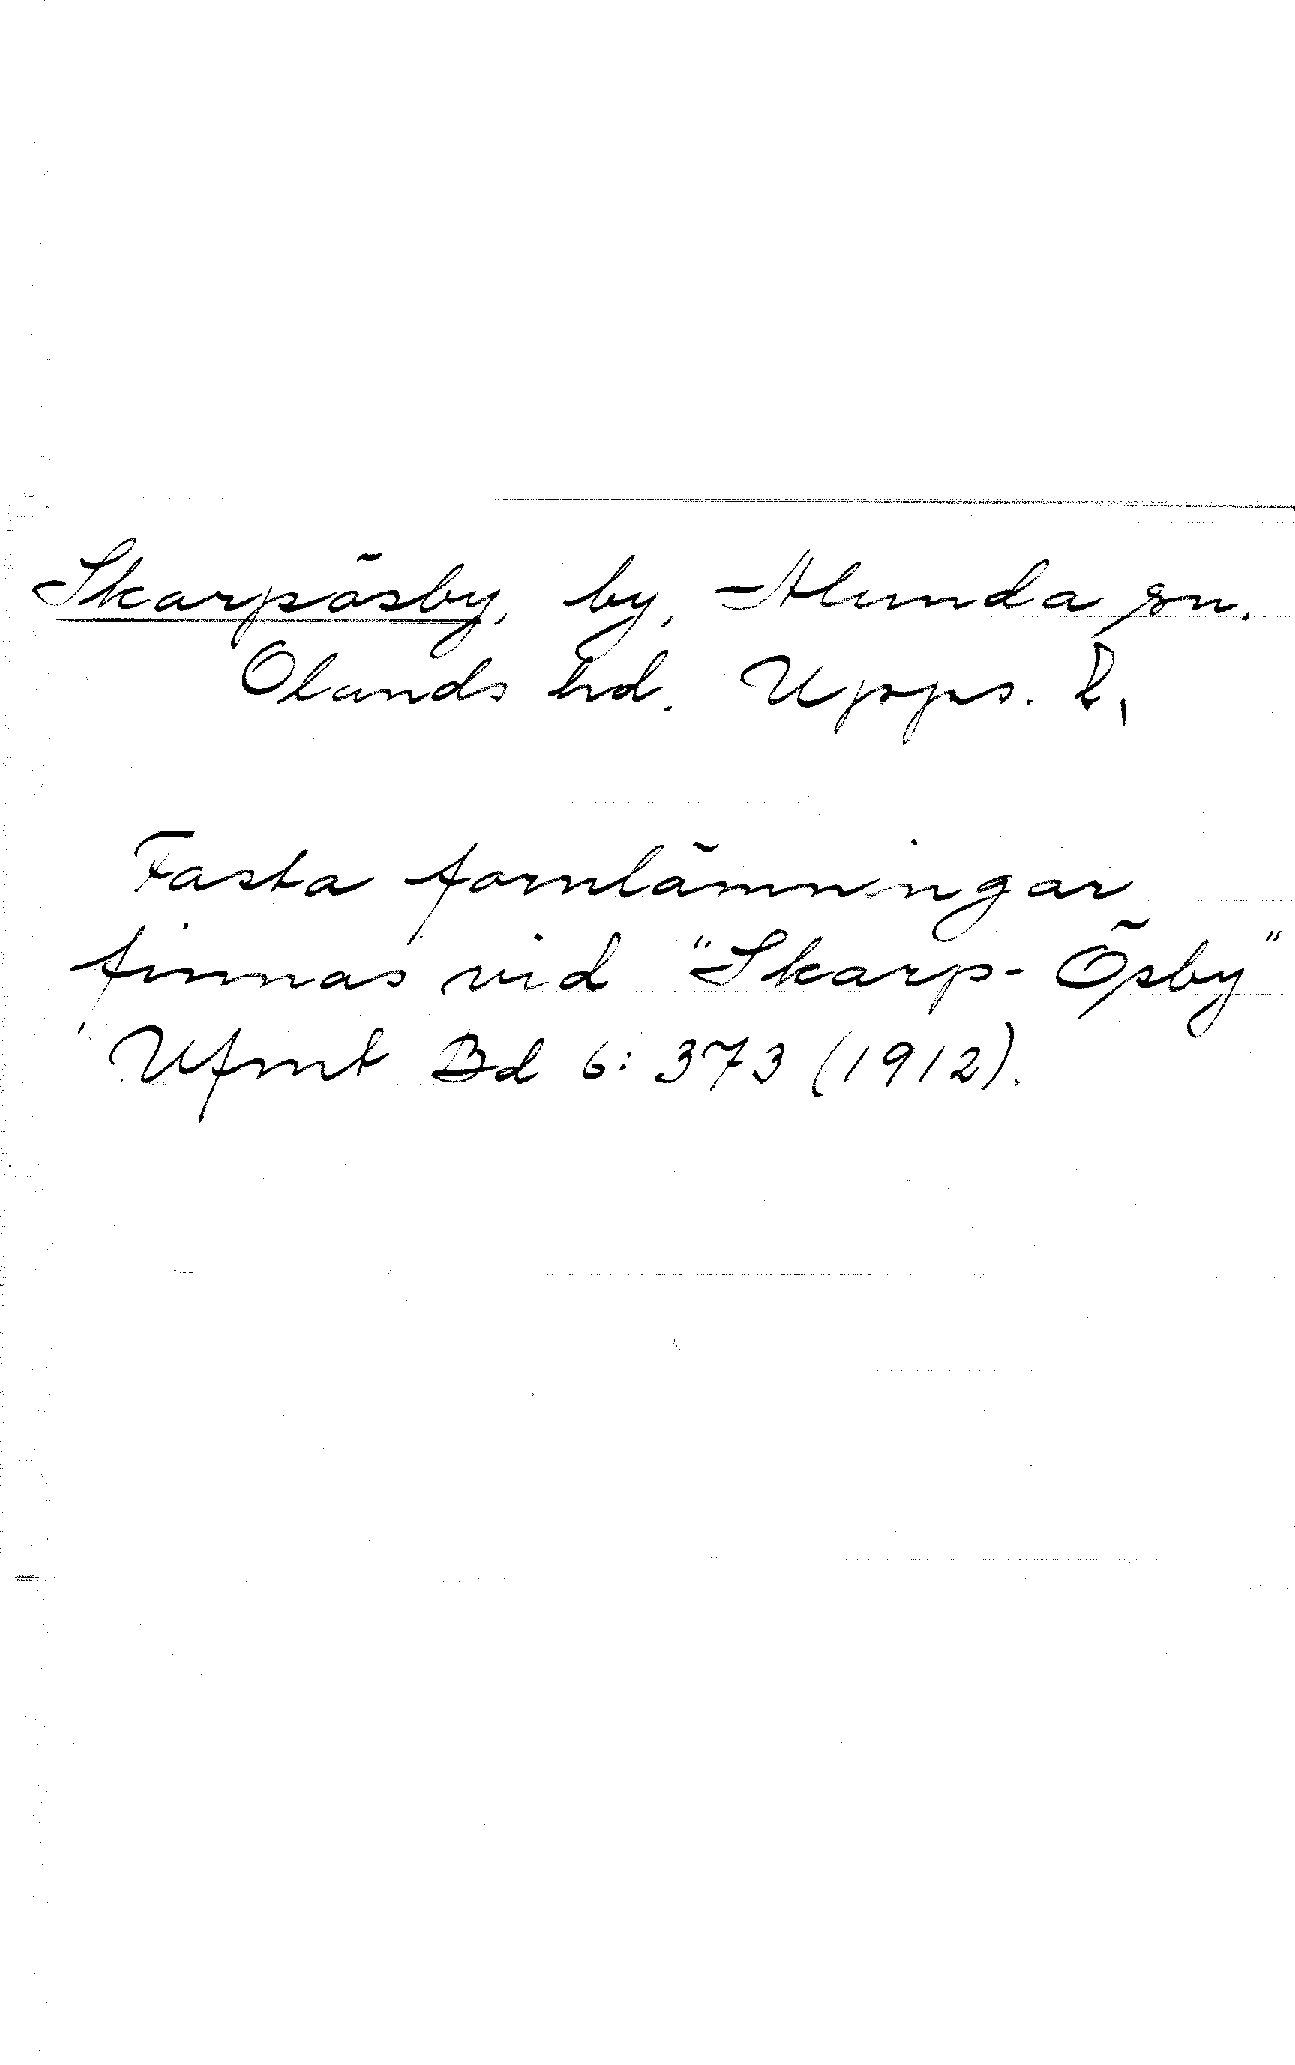 Skarpösby, by, Alunda sn.
Olands hd. Upps. l.
Fasta fornlämningar
finnas vid "Skarp-Ösby"
Ufmt Bd 6: 373 (1912).